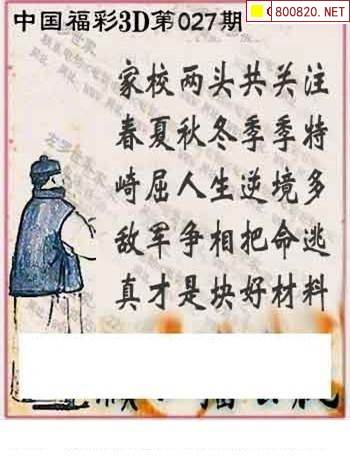 中国福彩3D第027期
800820.NET
家校两头共关注
春夏秋冬季季特
崎屈人生逆境多
敌军争相把命逃
真才是块好材料